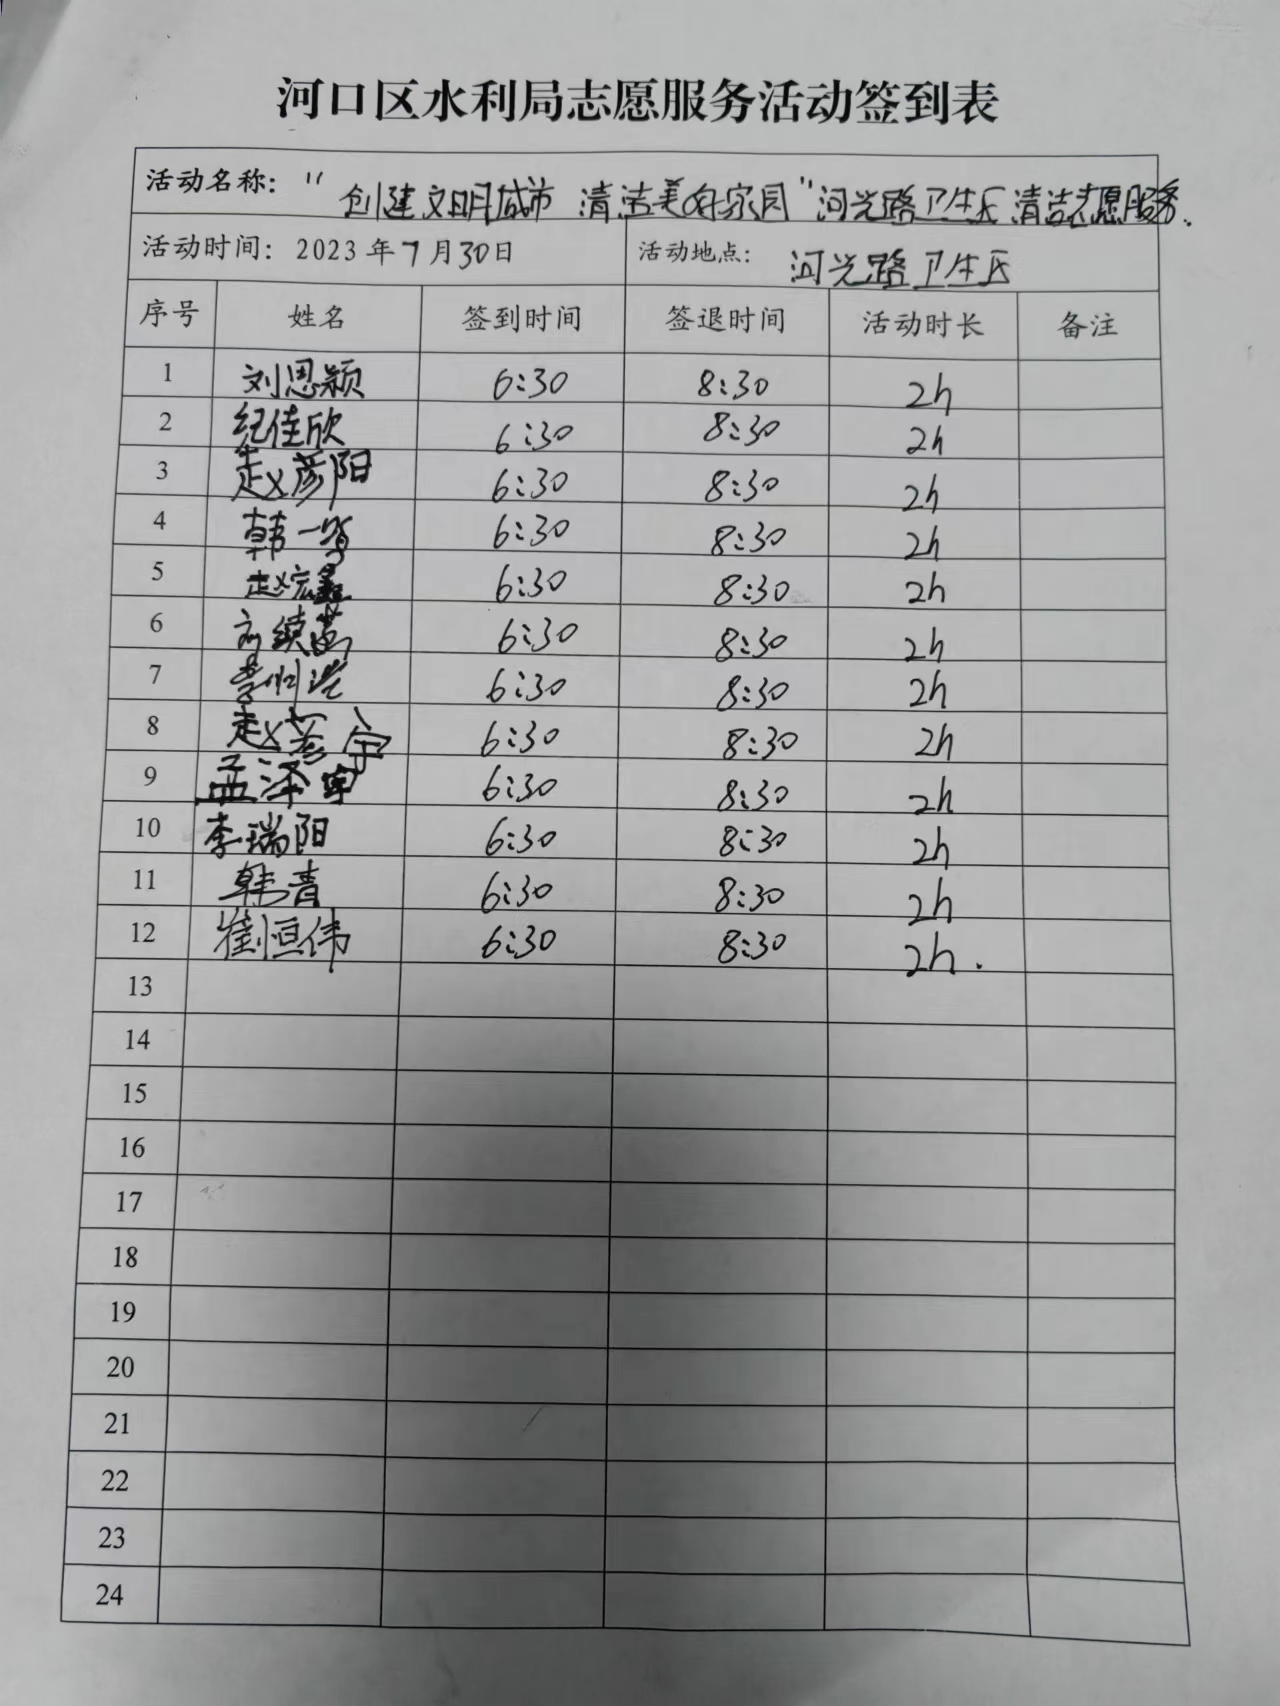 河口区水利局志愿服务活动签到表
活动名称："创建文明城市 清洁美好家园"河光路卫生区清洁志愿服务.
活动时间：2023年7月30日 活动地点：河光路卫生区
序号 姓名 签到时间 签退时间 活动时长 备注
1 刘思颖 6:30 8:30 2h
2 纪佳欣 6:30 8:30 2h
3 赵彦阳 6:30 8:30 2h
4 韩一 6:30 8:30 2h
5 赵宏鑫 6:30 8:30 2h
6 6:30 8:30 2h
7 李 6:30 8:30 2h
8 赵彦宇 6:30 8:30 2h
9 孟泽宇 6:30 8:30 2h
10 李瑞阳 6:30 8:30 2h
11 韩青 6:30 8:30 2h
12 崔恒伟 6:30 8:30 2h.
13
14
15
16
17
18
19
20
21
22
23
24